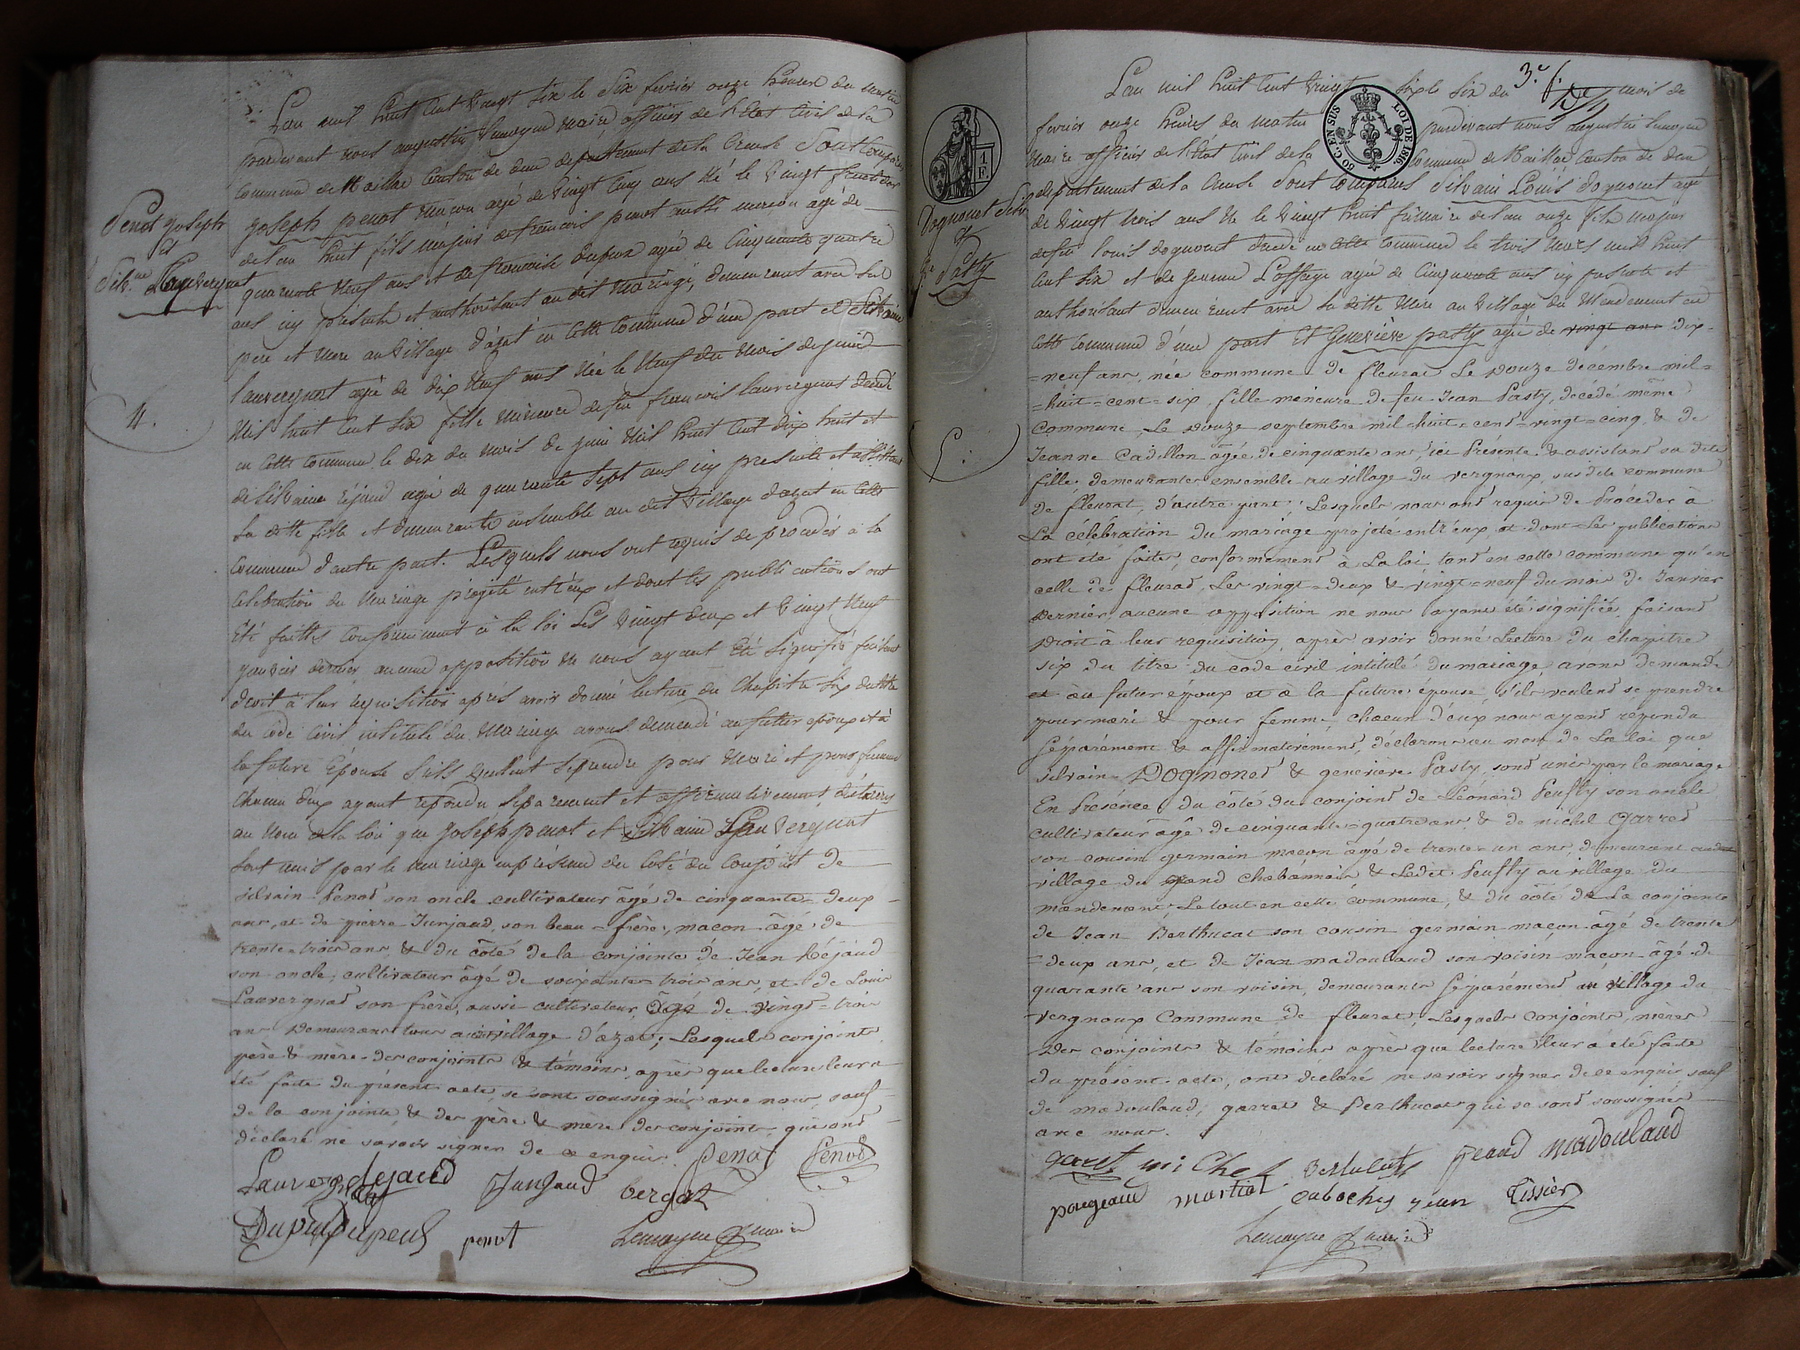 Penot joseph
et
Silv.ne Lauvergnat
4.
L'an mil huit cent vingt six le six fevrier onze heures du matin
pardevant nous augustin Lemoyne maire officier de l'Etat Civil de la
Commune de Naillac Canton de dun departement de la Creuse Sont Comparus
joseph penot maçon agé de vingt cinq ans né le vingt
de l'an huit fils majeur de francois penot aussi macon agé de
quarante neuf ans et de francoise dupeux agée de Cinquante quatre
ans icy presents et authorisant au dit mariage, demeurant avec ses
pere et mere au Village d'azat en cette Commune d'une part et Silvaine
lauvergnat agée de dix neuf ans née le neuf du mois de
mil huit cent six fille mineure de feu francois lauvergnat decédé
en cette Commune le dix du mois de juin mil huit cent dix huit et
de Silvaine rejaud agée de quarante sept ans icy presente et assistant
sa ditte fille et demeurante ensemble au dit Village d'azat en cette
Commune d'autre part. Lesquels nous ont requis de proceder a la
celebration du Mariage projeté entr'eux et dont les publications ont
Eté faittes Conformément à la loi Les vingt deux et vingt neuf
janvier dernier, aucune opposition ne nous ayant Eté signifié faisant
droit a leur requisition après avoir donné lecture du Chapitre six du titre
du Code Civil intitulé du Mariage avons demandé au futur epoux et à
la future Epouse S'ils veulent se prendre pour Mari et pour femme
Chacun d'eux ayant repondu Separement et affirmativement, déclarons
au Nom de la loi que joseph penot et Silvaine Lauvergnat
sont unis par le mariage en présence du coté du Conjoint de
silvain Penot son oncle cultivateur âgé de cinquante-deux
ans, et de pierre Junjaud, son beau-frère, maçon âgé de
trente-trois ans, & du côté de la conjointe de Jean Réjaud
son oncle, cultivateur âgé de soixante trois ans, et de Louis
Lauvergnat son frère, aussi cultivateur, âgé de vingt-trois
ans demeurans tous au village d'azat; Lesquels conjoints,
père & mère des conjoints & témoins, après que lecture leur a
été faite du présent acte, se sont soussignés avec nous, sauf
de la conjointe & des père & mère des conjoints qui ont
déclaré ne savoir signer de ce enquis.
penot Penot
Lauvergnat Rejaud Junjaud bergat
Dupeux Dupeux penot Lemoyne maire
3.e f.
60 C. EN SUS LOI DE 1816
1 F.
Dognonet Silv.
et
G.e Pasty
5.
L'an mil huit cent vingt six le six du mois de
fevrier onze heures du matin pardevant nous augustin Lemoyne
maire officier de l'état Civil de la Commune de Naillac Canton de dun
departement de la Creuse Sont Comparus Silvain Louis dognonet agé
de vingt trois ans né le vingt huit frimaire de l'an onze fils majeur
de feu louis dognonet decédé en cette Commune le trois mars mil huit
cent six et de jeanne Peuffly agée de Cinquante ans icy presente et
authorisant demeurant avec sa ditte mere au Village du Mandement en
cette Commune d'une part Et Geneviève pasty agée de vingt ans dix-
=neuf ans, née commune de fleurat Le douze décembre mil=
=huit=cent=six, fille mineure de feu Jean Pasty, décédé même
commune, Le douze septembre mil-huit-cent-vingt-cinq, & de
Jeanne Cadillon âgée de cinquante ans, ici Présente & assistant sa dite
fille; demeurantes ensemble au village du vergnoux, susdite commune
de fleurat, d'autre part; Lesquels nous ont requis de Procéder à
La célébration du mariage projeté entr'eux, et dont Les publications
ont été faites, conformément à La loi, tant en cette commune qu'en
celle de fleurat, Les vingt-deux & vingt-neuf du mois de Janvier
dernier; aucune opposition ne nous ayant été signifiée, faisant
droit à leur requisition, après avoir donné Lecture du chapitre
six du titre du code civil intitulé du mariage, avons demandé
et au futur époux et à la future épouse, s'ils veulent se prendre
pour mari & pour femme, chacun d'eux nous ayant répondu
séparément & affirmativement, déclarons au nom de La loi que
silvain Dognonet & geneviève Pasty, sont unis par le mariage
En Présence, du côté du conjoint de Léonard Peuffly son oncle
cultivateur âgé de cinquante-quatre ans, & de michel Garret
son cousin germain maçon âgé de trente-un ans, demeurant audit
village du grand Chabannais & Ledit Peuffly au village du
mandement, Le tout en cette commune, & du côté de La conjointe
de Jean Berthucat son cousin germain maçon âgé de trente
=deux ans, et de Jean madoulaud son voisin maçon âgé de
quarante ans son voisin, demeurants séparément au village du
vergnoux Commune de fleurat, Lesquels conjoints, mères
des conjoints & témoins après que lecture leur a été faite
du présent acte, ont déclaré ne savoir signer de ce enquis sauf
de madoulaud, garret & Berthucat qui se sont soussignés
avec nous.
garet miChel Bertucat Jeand madoulaud
pougeaud martial Cabochy jean Tissier
Lemoyne maire